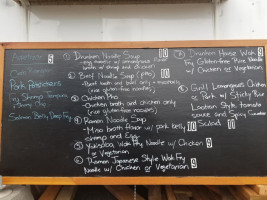 Appetizers 5
Pork Potstickers
Fry Shrimp Tempura
Salmon Belly Deep Fry
① Drunken Noodle Soup 10
② Beef Noodle Soup (Pho) 10
- Beef broth and beef only + meatballs
(rice gluten-free noodles)
③ Chicken Pho
- Chicken broth and chicken only
(rice gluten-free noodles)
④ Ramen Noodle Soup
- Miso broth flavor w/ pork belly,
shrimp and Egg 10
⑤ Yakisoba Wok Fry Noodle w/ Chicken
or Vegetarian 9
⑥ Ramen Japanese Style Wok Fry
Noodle w/ Chicken or Vegetarian 9
⑦ Drunken House Wok 9
Fry Gluten-Free Rice Noodle
w/ Chicken or Vegetarian
⑧ Grill Lemongrass Chicken
or Pork w/ Sticky Rice
Laotian Style tomato
sauce and Spicy Cucumber
Salad 11